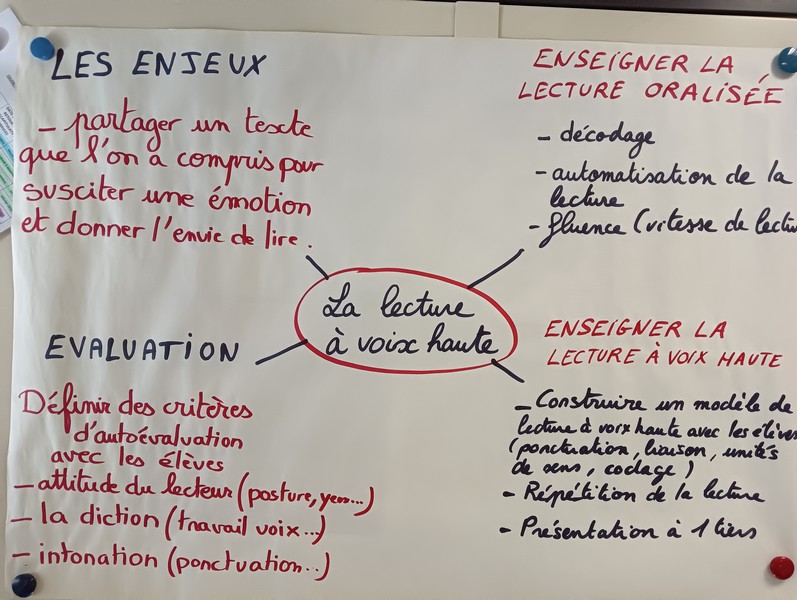 LES ENJEUX
- partager un texte
que l'on a compris pour
susciter une émotion
et donner l'envie de lire.
ENSEIGNER LA
LECTURE ORALISÉE
- décodage
- automatisation de la
lecture
- fluence (vitesse de lectu
La lecture
à voix haute
EVALUATION
Définir des critères
d'autoévaluation
avec les élèves
- attitude du lecteur (posture, yeux...)
- la diction (travail voix...)
- intonation (ponctuation..)
ENSEIGNER LA
LECTURE À VOIX HAUTE
- Construire un modèle de
lecture à voix haute avec les élèves
(ponctuation, liaison, unités
de sens, codage)
- Répétition de la lecture
- Présentation à 1 tiers